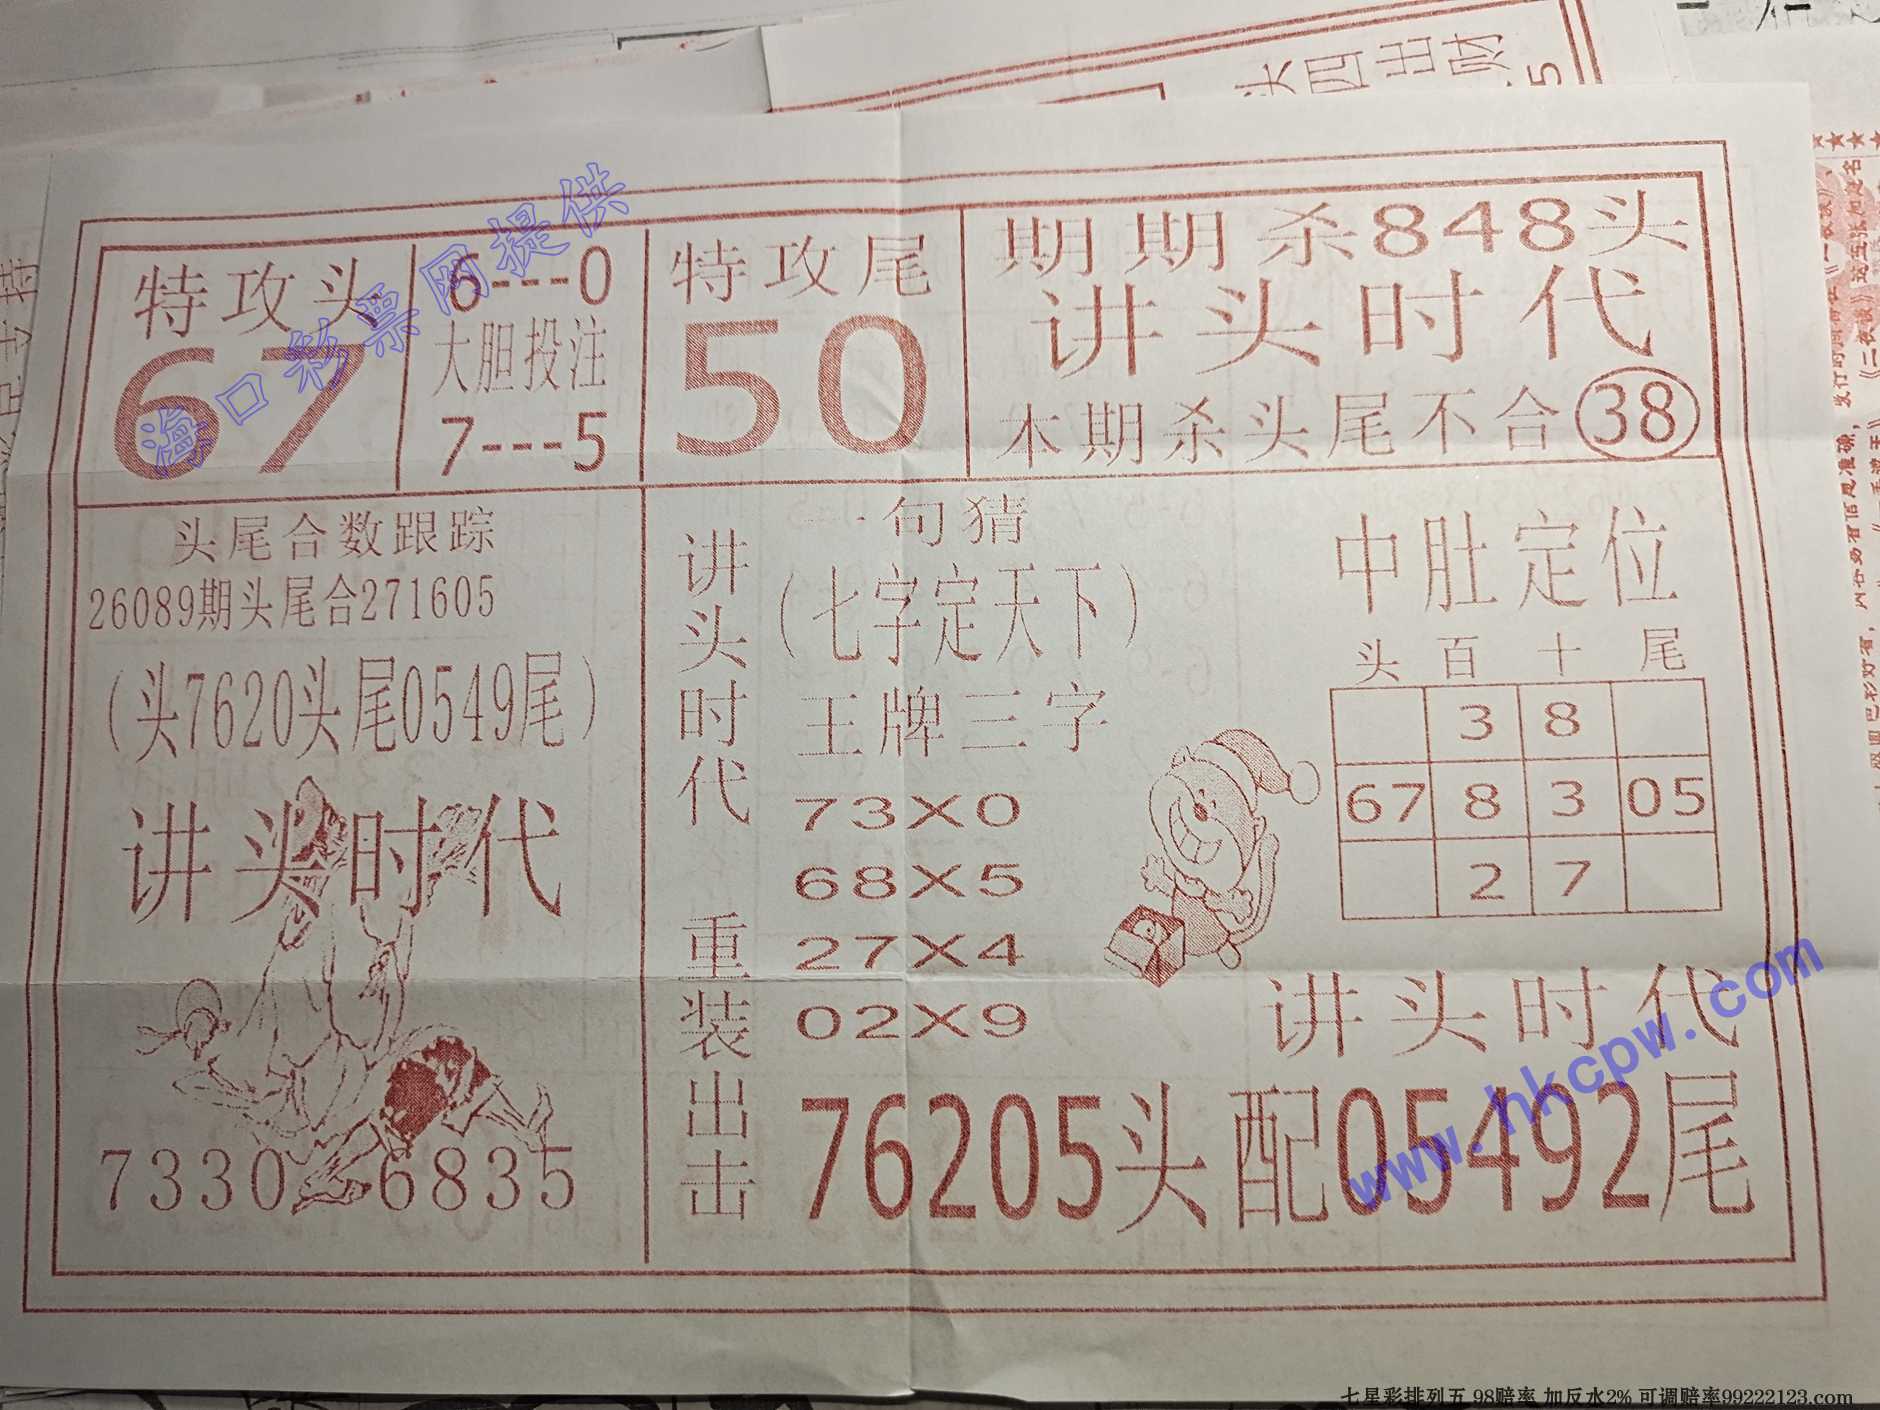 头四出财
5
特攻头
67
6---0
大胆投注
7---5
特攻尾
50
期期杀848头
讲头时代
本期杀头尾不合38
头尾合数跟踪
26089期头尾合271605
(头7620头尾0549尾)
讲头时代
7330 6835
讲头时代
重装出击
一句猜
(七字定天下)
王牌三字
73X0
68X5
27X4
02X9
中肚定位
头 百 十 尾
3 8
67 8 3 05
2 7
讲头时代
76205头配05492尾
海口彩票网提供
www.hkcpw.com
七星彩排列五 98赔率 加反水2% 可调赔率99222123.com